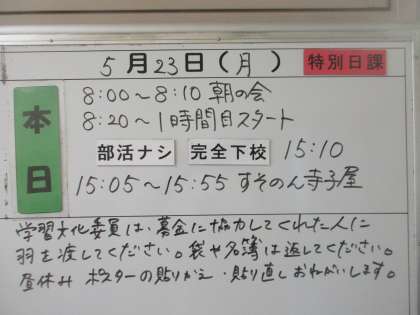 5月23日(月) 特別日課
本日
8:00～8:10 朝の会
8:20～1時間目スタート
部活ナシ 完全下校 15:10
15:05～15:55 すそのん寺子屋
学習文化委員は、募金に協力してくれた人に
羽を渡してください。袋や名簿は返してください。
昼休み ポスターの貼りかえ・貼り直しおねがいします。